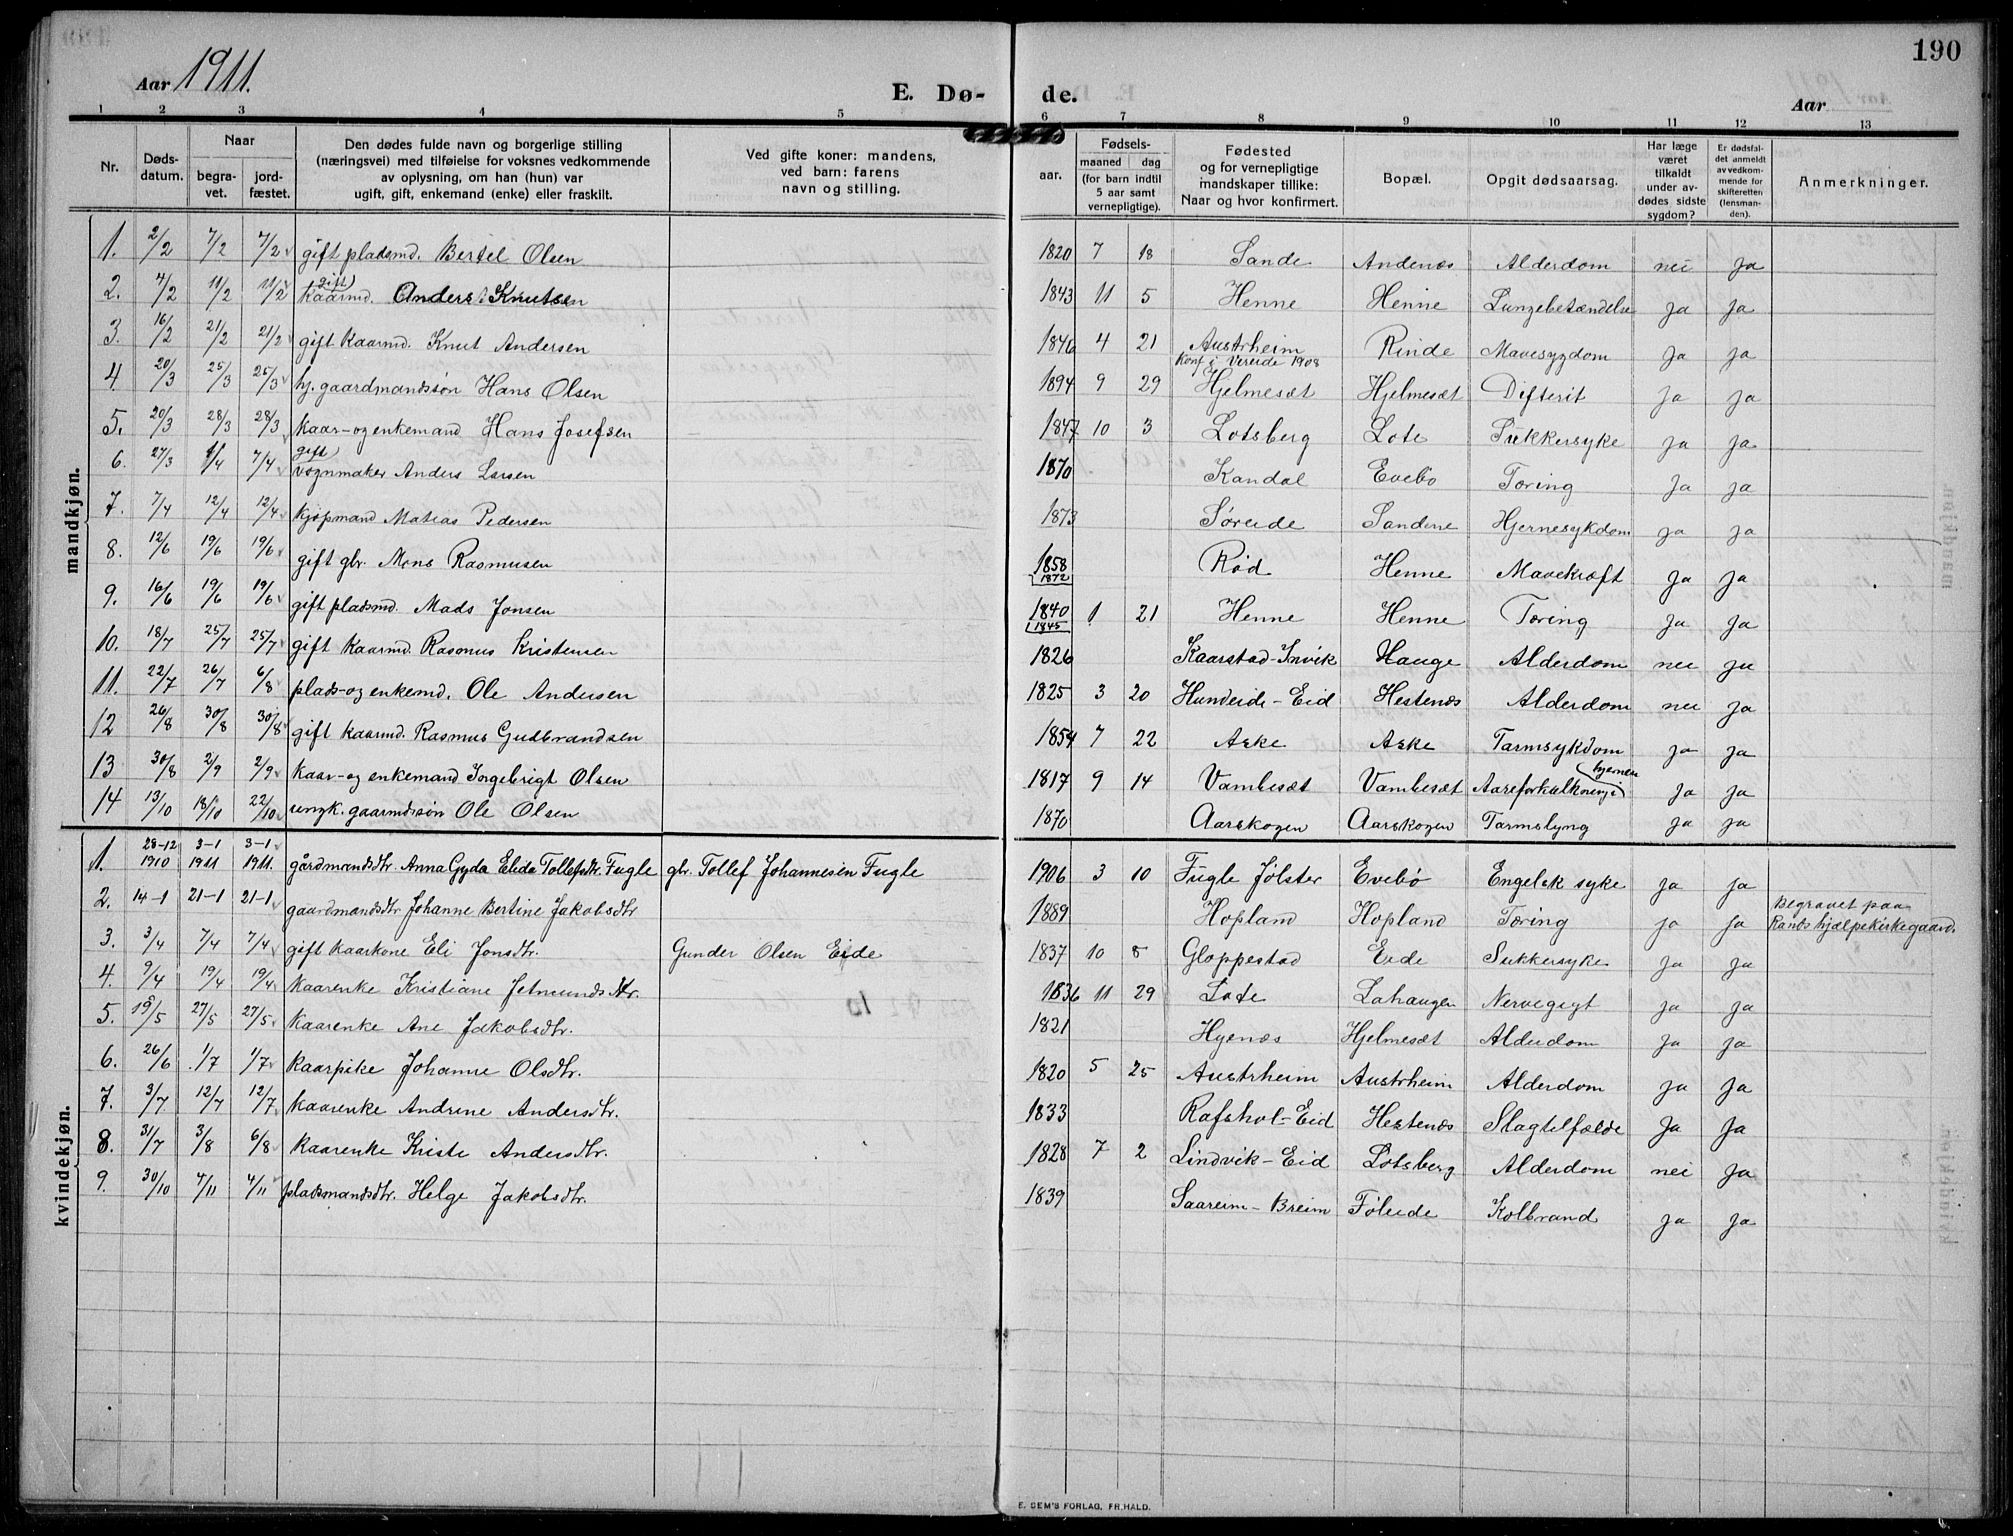 190
Aar 1911.
E. Dø- de.
Aar
1 2 3 4 5 6 7 8 9 10 11 12 13
Nr.
Døds-
datum.
Naar
begra-
vet.
jord-
fæstet.
Den dødes fulde navn og borgerlige stilling
(næringsvei) med tilføielse for voksnes vedkommende
av oplysning, om han (hun) var
ugift, gift, enkemand (enke) eller fraskilt.
Ved gifte koner: mandens,
ved barn: farens
navn og stilling.
Fødsels-
aar.
maaned
dag
(for barn indtil
5 aar samt
vernepligtige).
Fødested
og for vernepligtige
mandskaper tillike:
Naar og hvor konfirmert.
Bopæl.
Opgit dødsaarsag.
Har læge
været
tilkaldt
under av-
dødes sidste
sygdom?
Er dødsfal-
det anmeldt
av vedkom-
mende for
skifteretten
(lensman-
den).
Anmerkninger.
mandkjøn.
1. 2/2 7/2 7/2 gift pladsmd. Bertel Olsen 1820 7 18 Sande Andenæs Alderdom nei ja
2. 4/2 11/2 11/2 gift kaarmd. Anders Knutsen 1843 11 5 Henne Henne Lungebetændelse ja ja
3. 16/2 21/2 21/2 gift kaarmd. Knut Andersen 1846 4 21 Austrheim Rinde Mavesygdom ja ja
Konf. i Vereide 1908
4. 20/3 25/3 25/3 hj. gaardmandssøn Hans Olsen 1894 9 29 Hjelmesæt Hjelmesæt Difterit ja ja
5. 20/3 28/3 28/3 kaar- og enkemand Hans Josefsen 1847 10 3 Lotsberg Lote Sukkersyke ja ja
6. 27/3 /4 7/4 gift vognmaker Anders Larsen 1870 Kandal Evebø Tæring ja ja
7. 7/4 12/4 12/4 kjøpmand Matias Pedersen 1873 Søreide Sandene Hjernesykdom ja ja
8. 12/6 19/6 19/6 gift gbr. Mons Rasmusen 1858 1872 Rød Henne Mavekræft ja ja
9. 16/6 19/6 19/6 gift pladsmd. Mads Jonsen 1840 1845 1 21 Henne Henne Tæring ja ja
10. 18/7 25/7 25/7 gift kaarmd. Rasmus Kristensen 1826 Kaarstad-Invik Hauge Alderdom nei ja
11. 22/7 26/7 6/8 plads- og enkemd. Ole Andersen 1825 3 20 Hundeide-Eid Hestenæs Alderdom nei ja
12 26/8 30/8 30/8 gift kaarmd. Rasmus Gudbrandsen 1854 7 22 Aske Aske Tarmsykdom ja ja
13 30/8 2/9 2/9 kaar- og enkemand Ingebrigt Olsen 1817 9 14 Vambesæt Vambesæt Aareforkalkning i hjernen ja ja
14 13/10 18/10 22/10 ungk. gaarmdssøn Ole Olsen 1870 Aarskogen Aarskogen Tarmslyng ja ja
kvindekjøn.
1. 28-12 1910 3-1 1911 3-1 1911. gårdmandsdtr. Anna Gyda Elida Tollefsdtr. Fugle gbr. Tollef Johannesen Fugle 1906 3 10 Fugle Jølster Evebø Engelsk syke ja ja
2. 14-1 21-1 21-1 gaardmandsdtr Johanne Bertine Jakobsdtr 1889 Hopland Hopland Tæring ja ja Begravet paa Rands hjælpekirkegaard.
3. 3/4 7/4 7/4 gift kaarkone Eli Jonsdtr. Gunder Olsen Eide 1837 10 8 Gloppestad Eide Sukkersyke ja ja
4. 9/4 19/4 19/4 kaarenke Kristiane Jetmundsdtr. 1836 11 29 Lote Lahaugen Nervegigt ja ja
5. 19/5 27/5 27/5 kaarenke Ane Jakobsdtr. 10 1821 Hyenæs Hjelmesæt Alderdom ja ja
6. 26/6 1/7 1/7 kaarpike Johanne Olsdtr. 1820 5 25 Austrheim Austrheim Alderdom ja ja
7. 3/7 12/7 12/7 kaarenke Andrine Andersdtr. 1833 Rafshol-Eid Hestenæs Slagtilfælde ja ja
8. 31/7 3/8 6/8 kaarenke Kristi Andersdtr. 1828 7 2 Lindvik-Eid Lotsberg Alderdom nei ja
9. 30/10 4/11 4/11 pladsmandsdtr. Helge Jakobsdtr. 1839 Saareim-Breim Føleide Kolbrand ja ja
E. SEM'S FORLAG, FR.HALD.